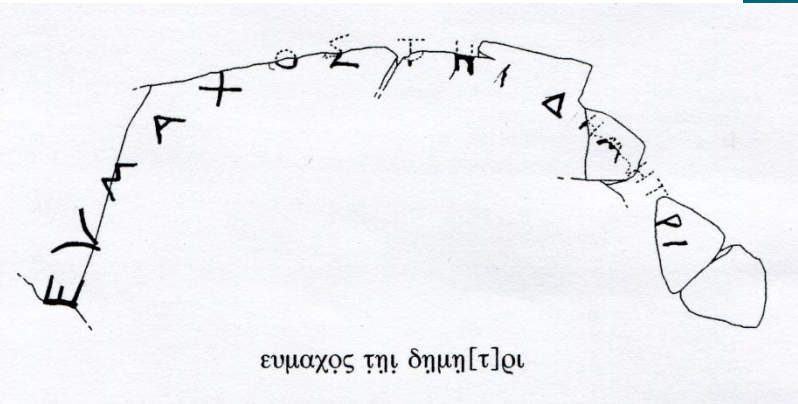 ΕΥΜΑΧΟΣ ΤΗΙ ΔΗΜΗΤΡΙ
ευμαχο̣ς τ̣η̣ι̣ δη̣μ̣η̣[τ]ρ̣ι